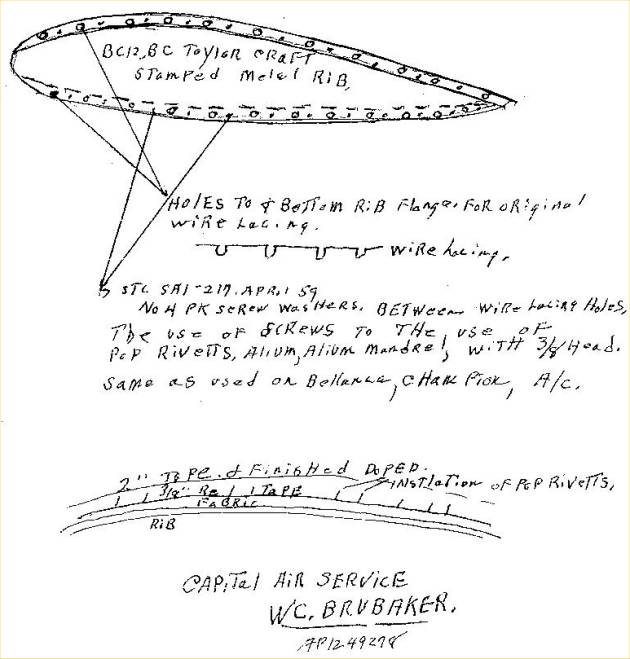 BC12, BC Taylor CRAFT
STamped Metel RiB,
HOlES To & BeTTom RiB Flange. FoR oRiginal
wiRe Lacing.
wiRe Lacing,
STC SA1-217. APRil 59
No 4 PK scRew washers. BETween wiRe Lacing Holes,
The use of SCRews To THe use of
PoP RiveTTs, Alium, Alium mandrel, wiTH 3/8 Head.
Same as used on Bellanca, CHamPion, A/c.
2" TaPe & Finished DoPED.
3/8" Re TaPE
INSTlaTion of PoP RiveTTs,
FaBRic
RiB
CAPiTal AiR SERViCE
W.C. BRUBAKER.
AP1249278